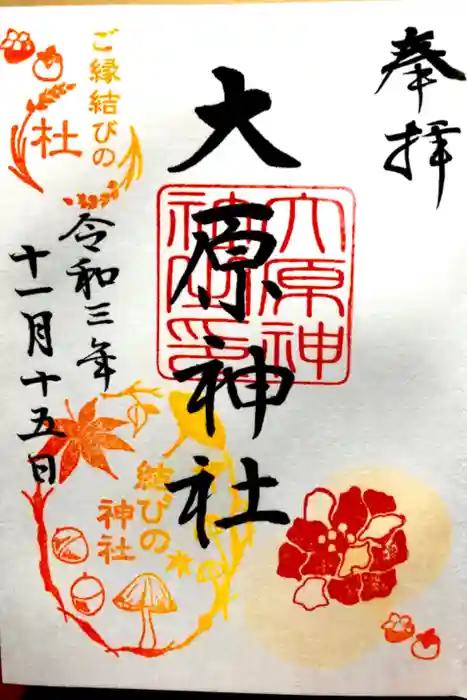 奉拝
大原神社
大原神
社印
令和三年
十一月十五日
ご縁結びの
杜
結びの
神社